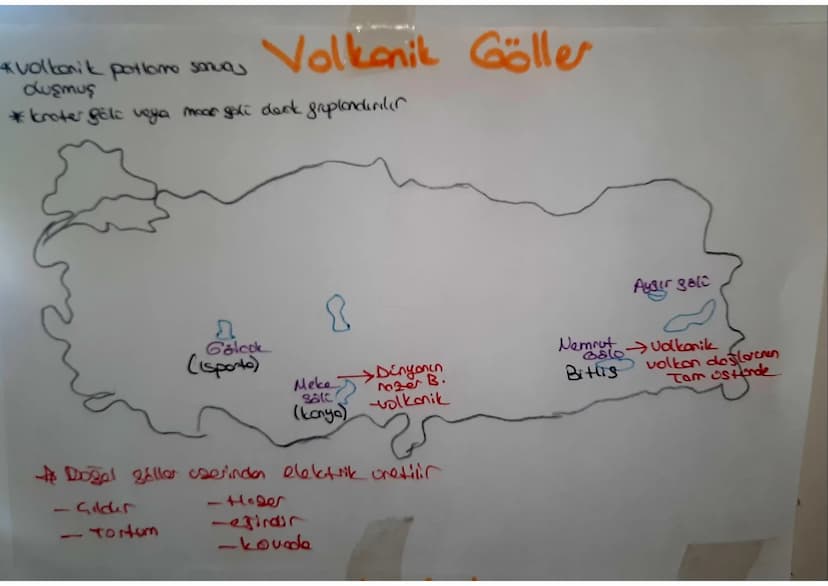 Volkanik Göller
* volkanik patlama sonucu
oluşmuş
* krater gölü veya maar gölü olarak gruplandırılır
Aygır gölü
Gölcük
(Isparta)
Nemrut
Gölü
Bitlis
→ volkanik
volkan dağlarının
Tam üstünde
Meke
gölü
(konya)
→ Dünyanın
nazar B.
- volkanik
* Doğal göller üzerinden elektrik üretilir
- Çıldır
- Tortum
- Hazar
- eğirdir
- kovada